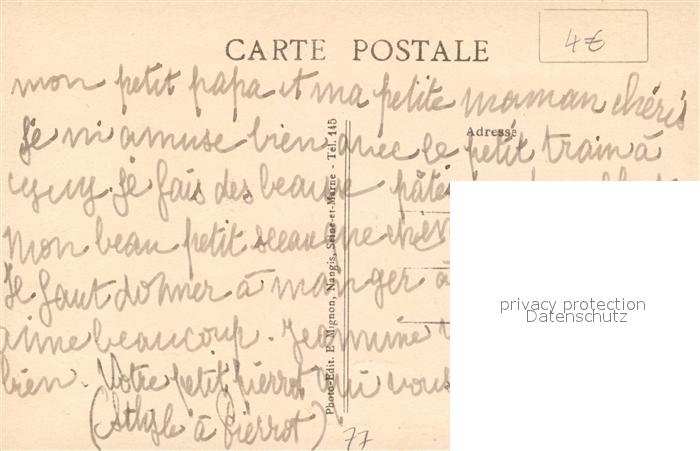 CARTE POSTALE
4€
mon petit papa et ma petite maman chéris
Adresse
Je m'amuse bien avec le petit train à
Je fais des beause pâtés
mon beau petit seeau que
Je faut donner à manger à
aime beaucoup. Jeannine
bien. Votre petit pierrot qui vous
(style à Pierrot)
77
Photo-Edit. E. Mignon, Nangis, Seine-et-Marne - Tél. 145
privacy protection
Datenschutz